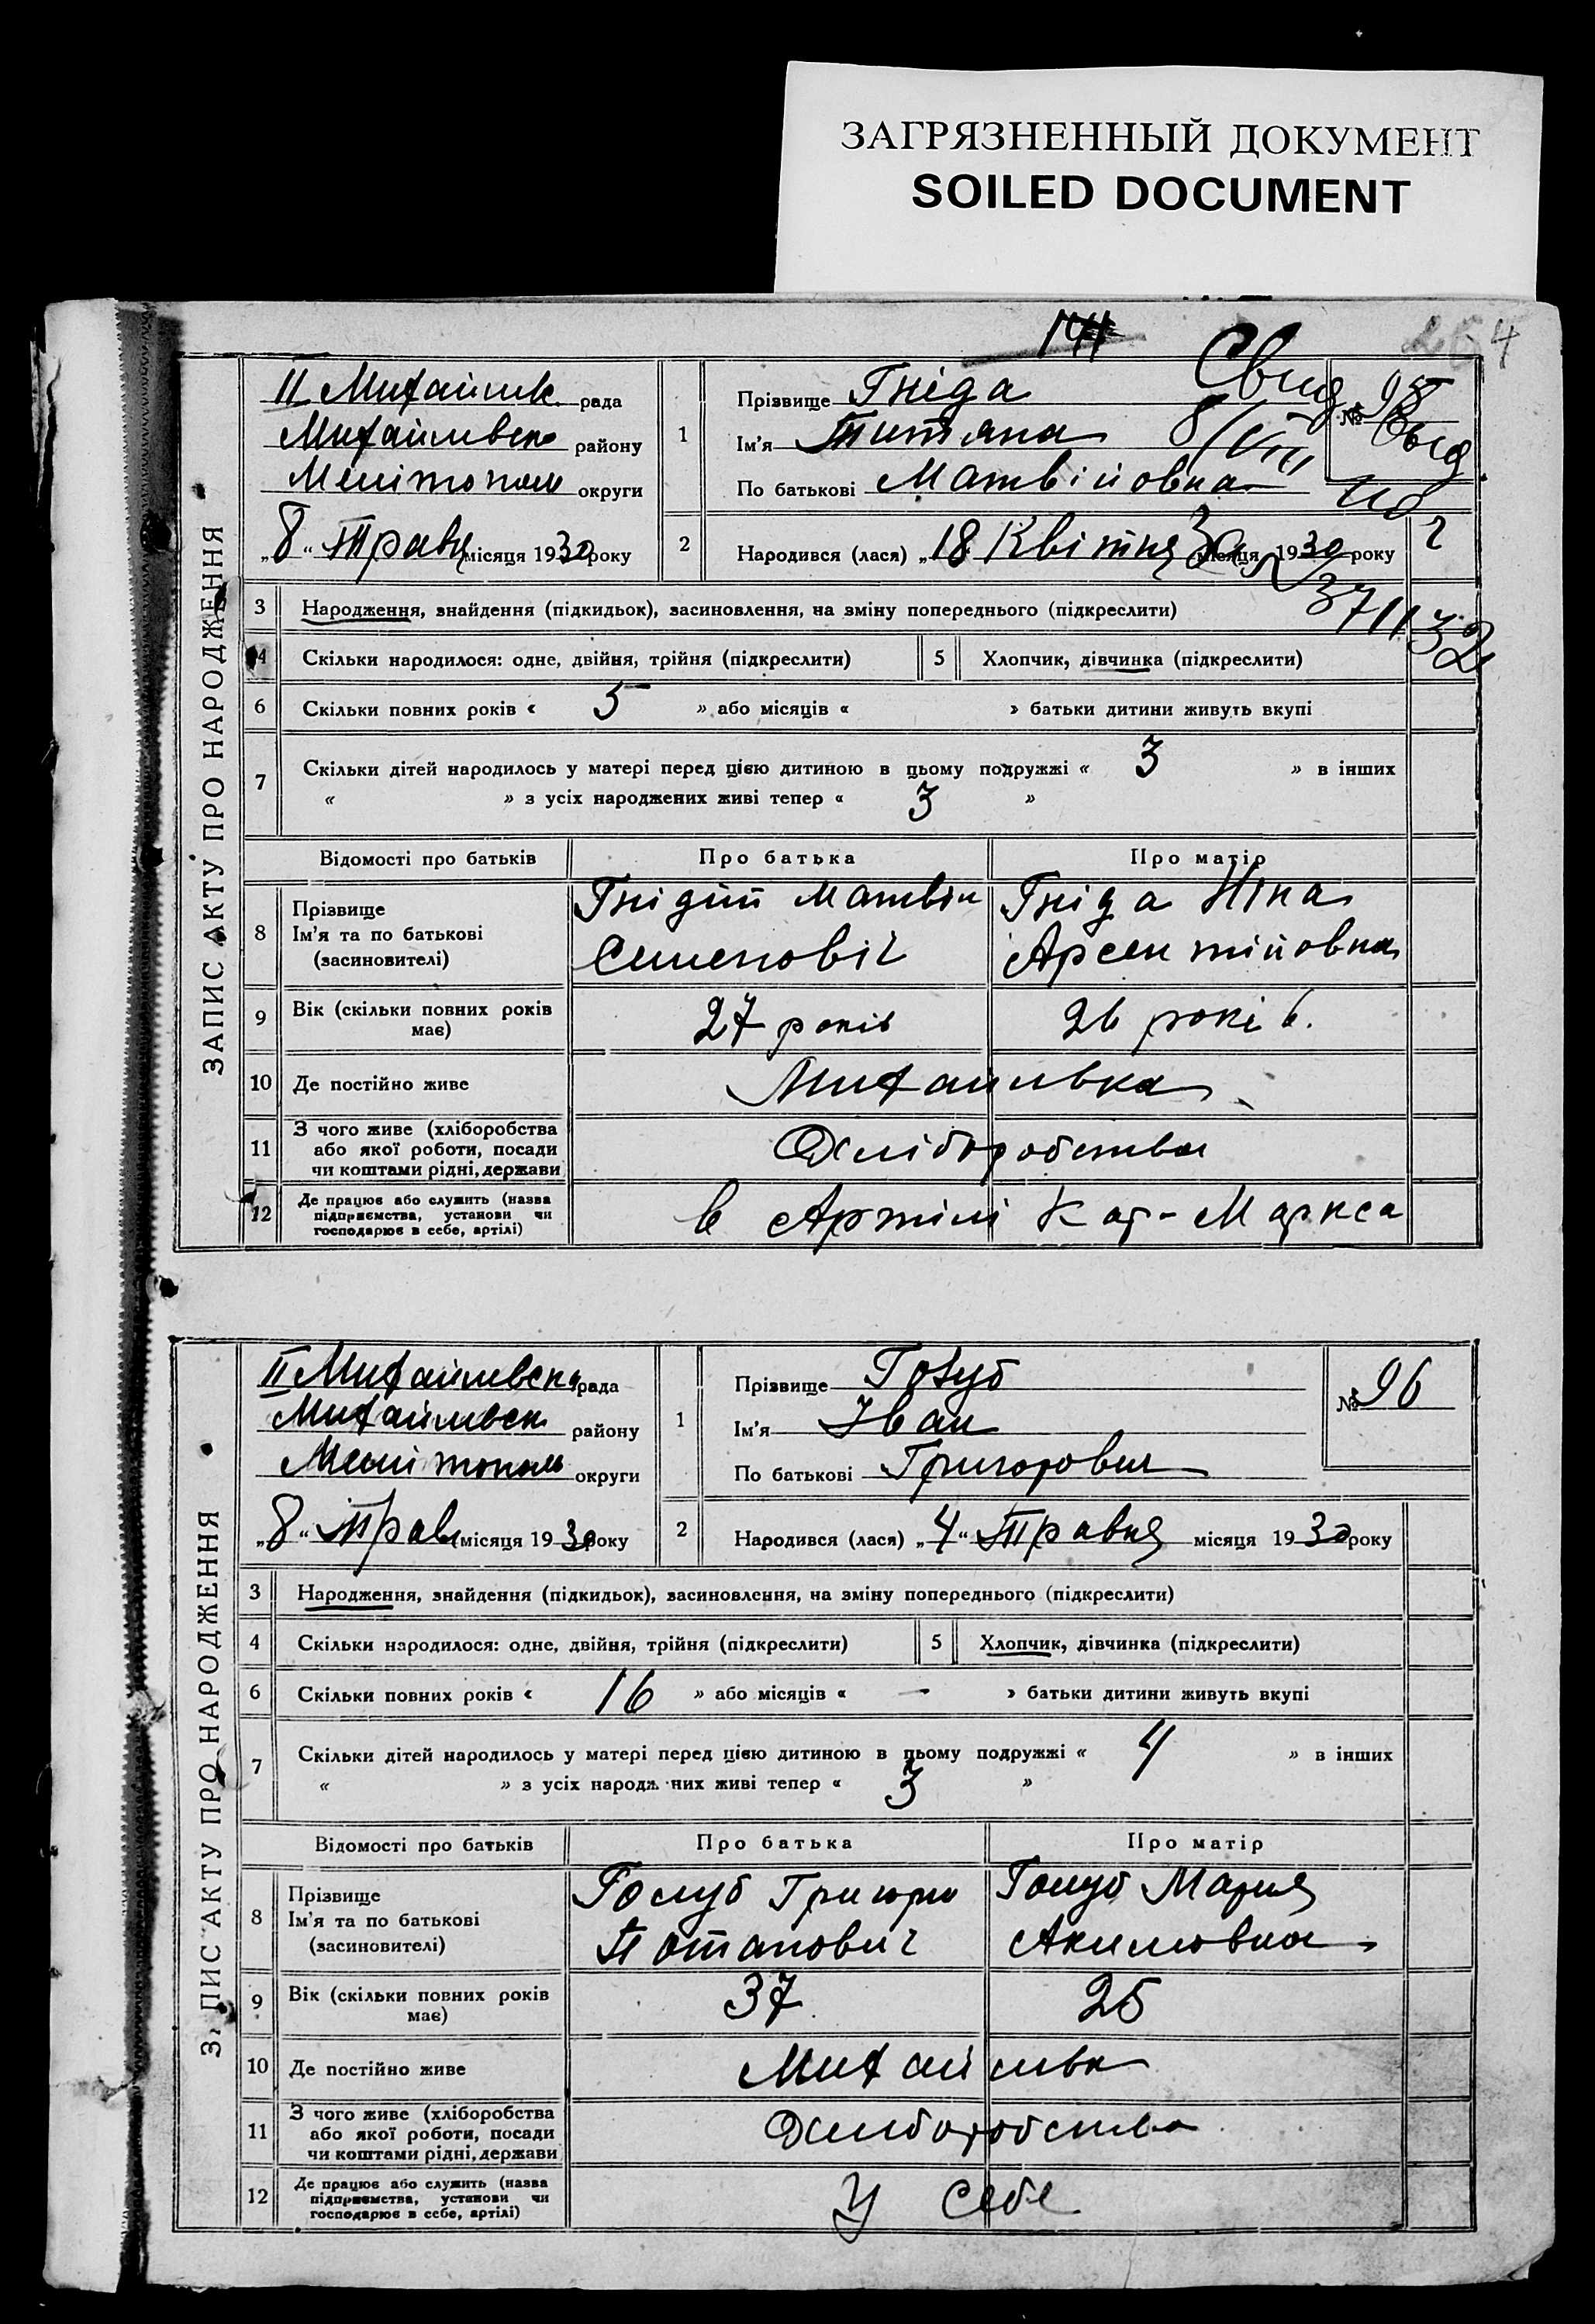 ЗАГРЯЗНЕННЫЙ ДОКУМЕНТ
SOILED DOCUMENT
264
ЗАПИС АКТУ ПРО НАРОДЖЕННЯ
II Михайлівск рада
Михайливск району
Мелітополь округи
„8“ Травня місяця 1930 року
1
Прізвище Гніда
Ім'я Титяна
По батькові Матвійовна
Свид
№ 95
8/VIII
2
Народився (лася) „18 Квітня місяця 1930 року
3 Народження, знайдення (підкидьок), засиновлення, на зміну попереднього (підкреслити)
4 Скільки народилося: одне, двійня, трійня (підкреслити) 5 Хлопчик, дівчинка (підкреслити)
6 Скільки повних років « 5 » або місяців « » батьки дитини живуть вкупі
7 Скільки дітей народилось у матері перед цією дитиною в цьому подружжі « 3 » в інших
« » з усіх народжених живі тепер « 3 »
Відомості про батьків Про батька Про матір
8 Прізвище Ім'я та по батькові (засиновителі)
Гнідий Матвій Семенович
Гніда Ніна Арсентійовна
9 Вік (скільки повних років має) 27 років 26 років.
10 Де постійно живе Михайливка
11 З чого живе (хліборобства або якої роботи, посади чи коштами рідні, держави Хліборобства
12 Де працює або служить (назва підприємства, установи чи господарює в себе, артілі) в Артілі Кар-Маркса
ЗАПИС АКТУ ПРО НАРОДЖЕННЯ
II Михайливска рада
Михайливск району
Мелітополь округи
„8“ Трав місяця 1930 року
1
Прізвище Голуб
Ім'я Іван
По батькові Григорович
№ 96
2
Народився (лася) „4“ Травня місяця 1930 року
3 Народження, знайдення (підкидьок), засиновлення, на зміну попереднього (підкреслити)
4 Скільки народилося: одне, двійня, трійня (підкреслити) 5 Хлопчик, дівчинка (підкреслити)
6 Скільки повних років « 16 » або місяців « — » батьки дитини живуть вкупі
7 Скільки дітей народилось у матері перед цією дитиною в цьому подружжі « 4 » в інших
« » з усіх народжених живі тепер « 3 »
Відомості про батьків Про батька Про матір
8 Прізвище Ім'я та по батькові (засиновителі)
Голуб Григорій Потапович
Голуб Мария Акимовна
9 Вік (скільки повних років має) 37 25
10 Де постійно живе Михайливк
11 З чого живе (хліборобства або якої роботи, посади чи коштами рідні, держави Хлиборобство
12 Де працює або служить (назва підприємства, установи чи господарює в себе, артілі) У себе